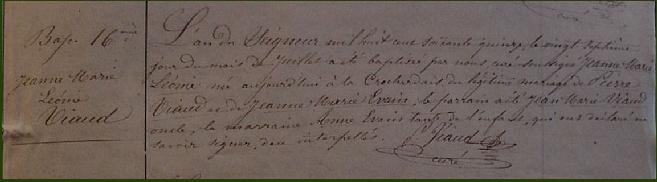 Bap. 16me
Jeanne Marie
Léonie
Viaud
L'an du Seigneur mil huit cent soixante quinze, le vingt septième
jour du mois de Juillet a été baptisée par nous, curé soussigné Jeanne Marie
Léonie née aujourd'hui à la du légitime mariage de Pierre
Viaud et de Jeanne Marie Evain; le parrain a été Jean Marie Viaud
oncle, la marraine Anne Evain tante de l'enfant, qui ont déclaré ne
savoir signer, de ce interpellés.
curé